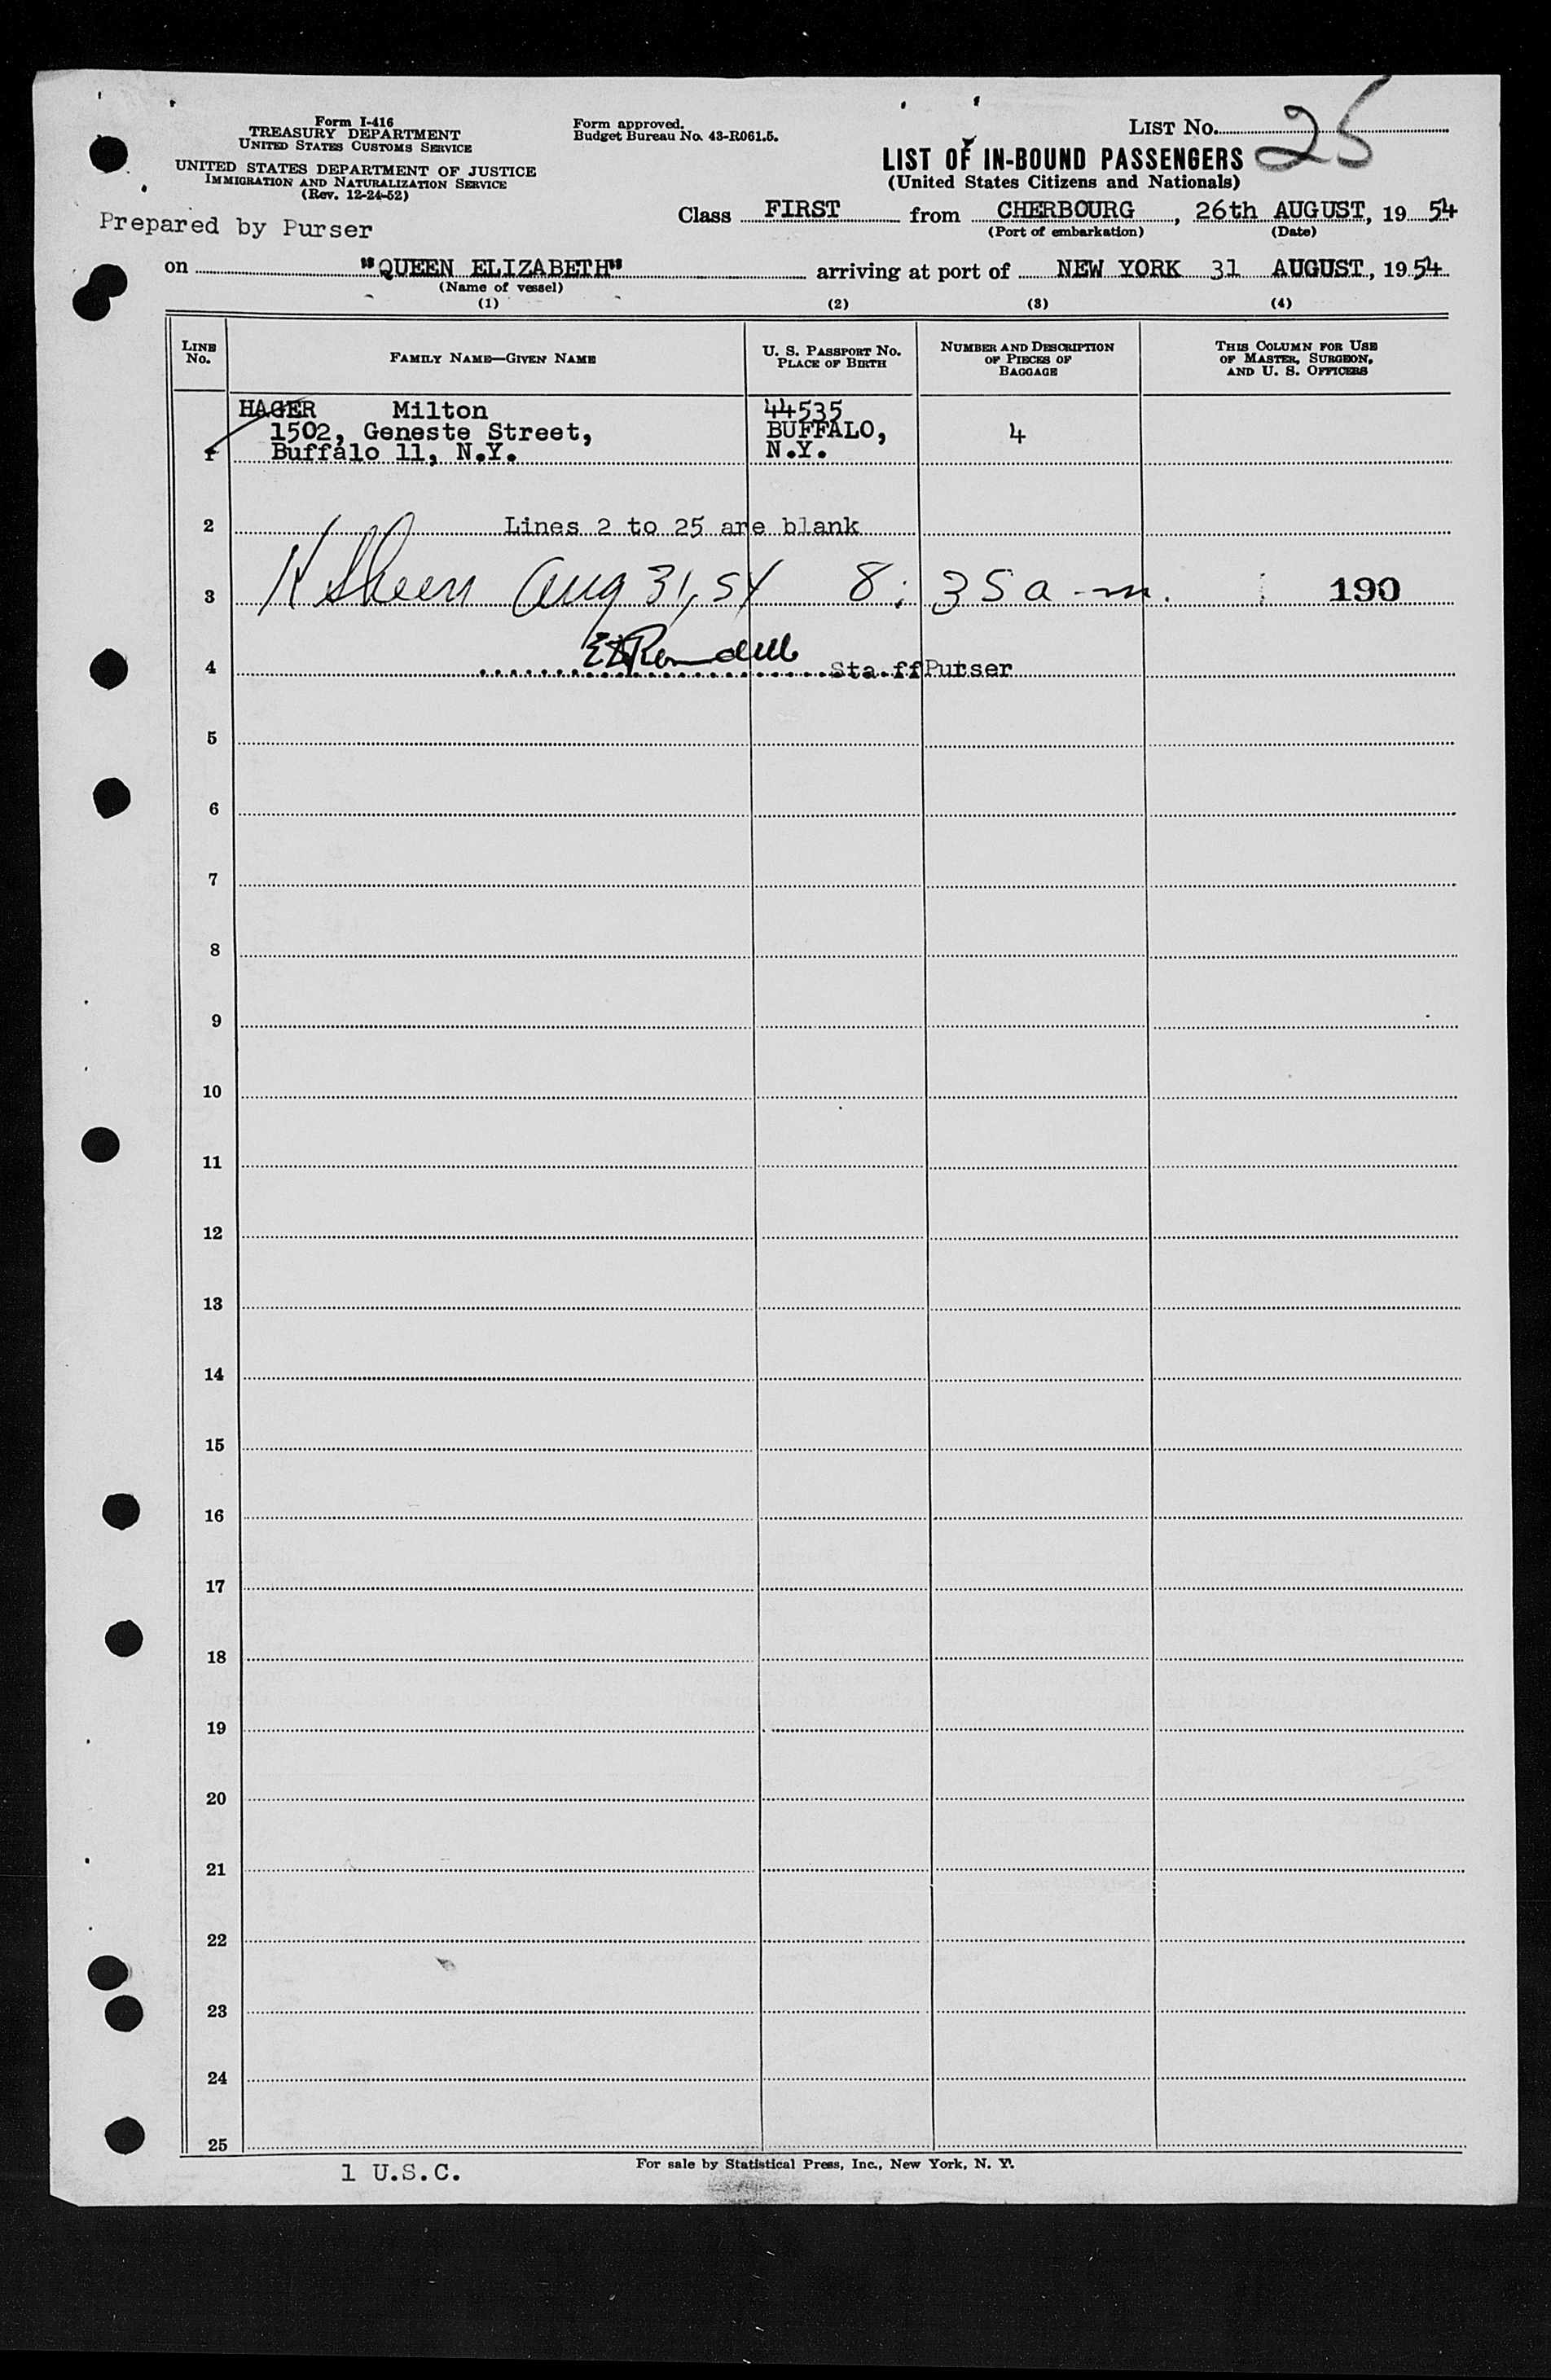 Form I-416
TREASURY DEPARTMENT
UNITED STATES CUSTOMS SERVICE
UNITED STATES DEPARTMENT OF JUSTICE
IMMIGRATION AND NATURALIZATION SERVICE
(Rev. 12-24-52)
Prepared by Purser
Form approved.
Budget Bureau No. 43-R061.5.
LIST NO. 25
LIST OF IN-BOUND PASSENGERS
(United States Citizens and Nationals)
Class FIRST from CHERBOURG, 26th AUGUST, 1954
(Port of embarkation) (Date)
on "QUEEN ELIZABETH" arriving at port of NEW YORK 31 AUGUST, 1954
(Name of vessel)
(1) (2) (3) (4)
LINE NO. FAMILY NAME—GIVEN NAME U. S. PASSPORT NO. PLACE OF BIRTH NUMBER AND DESCRIPTION OF PIECES OF BAGGAGE THIS COLUMN FOR USE OF MASTER, SURGEON, AND U. S. OFFICERS
HAGER Milton 44535
1502, Geneste Street, BUFFALO, 4
1 Buffalo 11, N.Y. N.Y.
2 Lines 2 to 25 are blank
3 Aug 31, 54 8:35 a.m. 190
4 Staff Purser
5
6
7
8
9
10
11
12
13
14
15
16
17
18
19
20
21
22
23
24
25
1 U.S.C. For sale by Statistical Press, Inc., New York, N. Y.